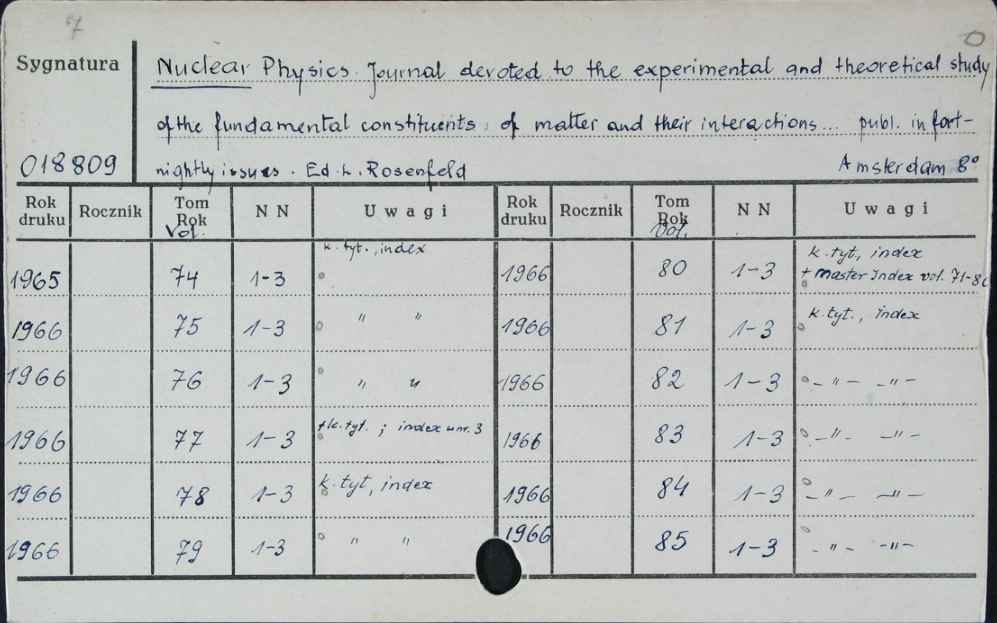 7 0
Sygnatura Nuclear Physics. Journal devoted to the experimental and theoretical study
of the fundamental constituents of matter and their interactions... publ. in fort-
018809 nightly issues. Ed. L. Rosenfeld Amsterdam 8°
Rok druku Rocznik Tom Rok Vol. NN Uwagi Rok druku Rocznik Tom Rok Vol. NN Uwagi
1965 74 1-3 k. tyt., index 1966 80 1-3 k. tyt, index
+ Master Index vol. 71-80
1966 75 1-3 " " 1966 81 1-3 k. tyt., index
1966 76 1-3 " " 1966 82 1-3 -"- -"-
1966 77 1-3 +k. tyt. ; index w nr. 3 1966 83 1-3 -"- -"-
1966 78 1-3 k. tyt, index 1966 84 1-3 -"- -"-
1966 79 1-3 " " 1966 85 1-3 -"- -"-